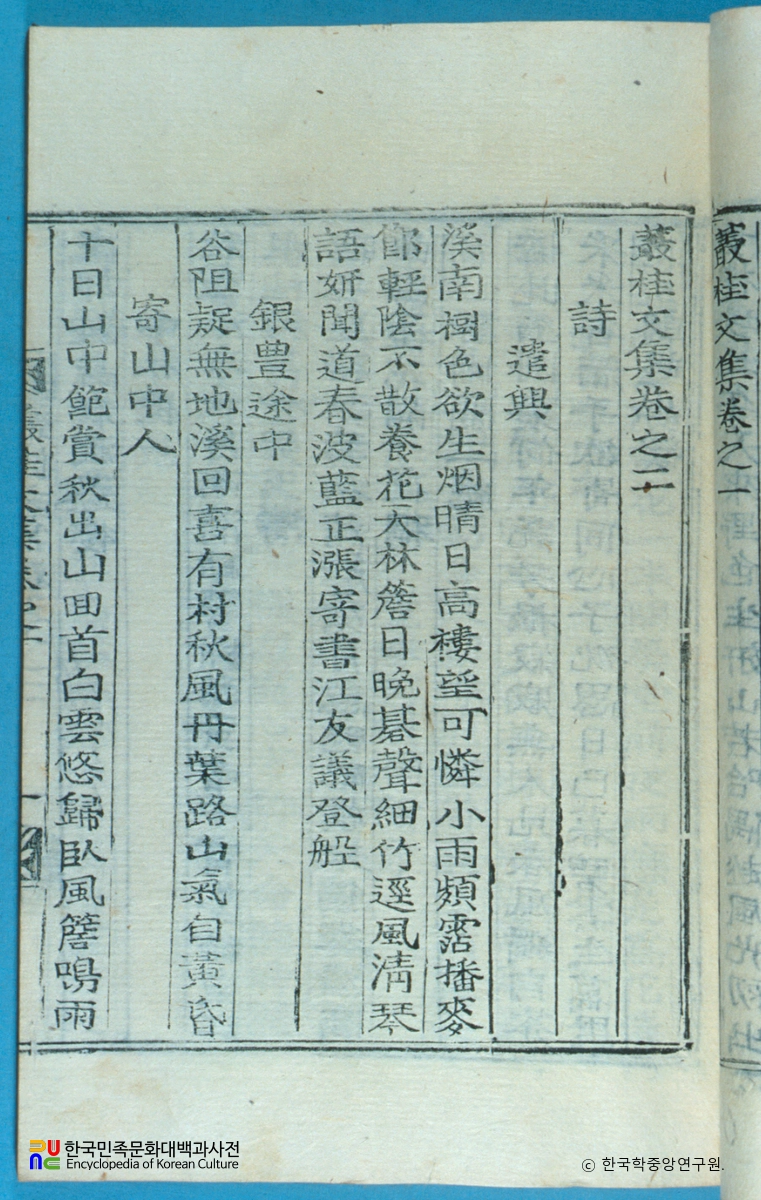 叢桂文集卷之一
叢桂文集卷之二
詩
遣興
溪南樹色欲生烟晴日高樓望可憐小雨頻霑播麥
郎輕陰不散養花天林簷日晩碁聲細竹逕風淸琴
語姸聞道春波藍正漲寄書江友議登船
銀豊途中
谷阻疑無地溪回喜有村秋風丹葉路山氣自黃昏
寄山中人
十日山中飽賞秋出山回首白雲悠歸臥風簷鳴雨
叢桂文集卷之二
한국민족문화대백과사전
Encyclopedia of Korean Culture
© 한국학중앙연구원.